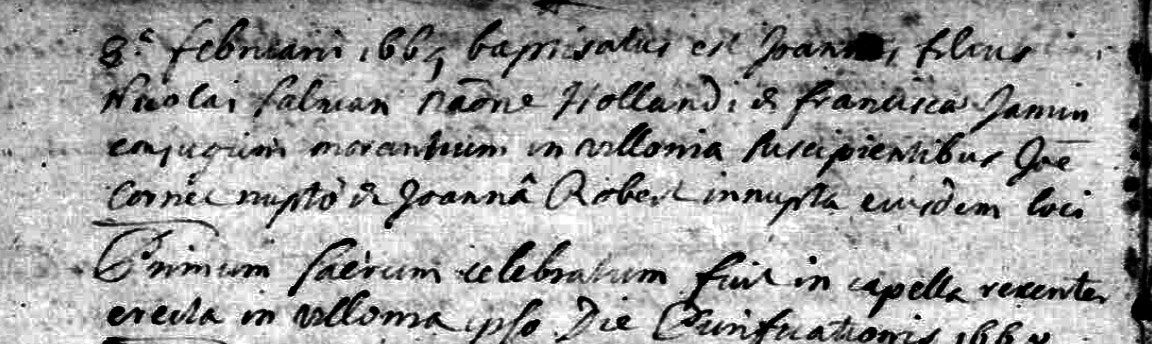 8ᵃ februarii 1665 baptisatus est Joannes filius
Nicolai Salman nãone Hollandi & francisca Jamin
conjugum morantium in villonia suscipientibus Joẽ
Cornet nupto & Joannâ Robert innupta eiusdem loci
Primum sacrum celebratum fuit in capella recenter
erecta in villonia ipso Die Purificationis